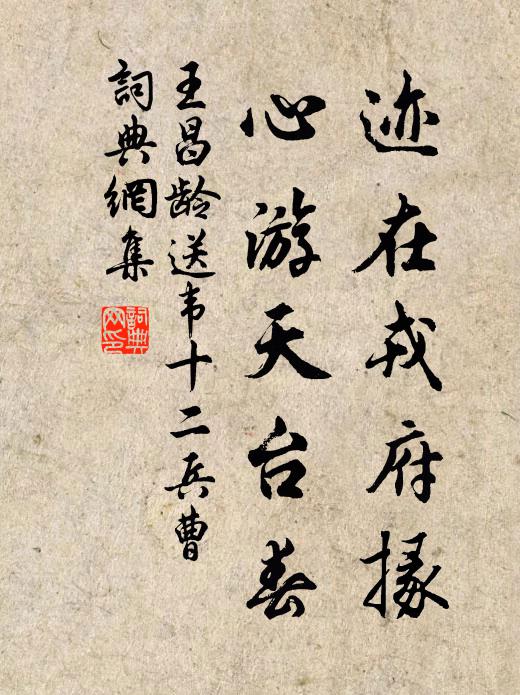 迹在戎府掾
心游天台春
王昌龄送韦十二兵曹
詞典網集
詞典网印